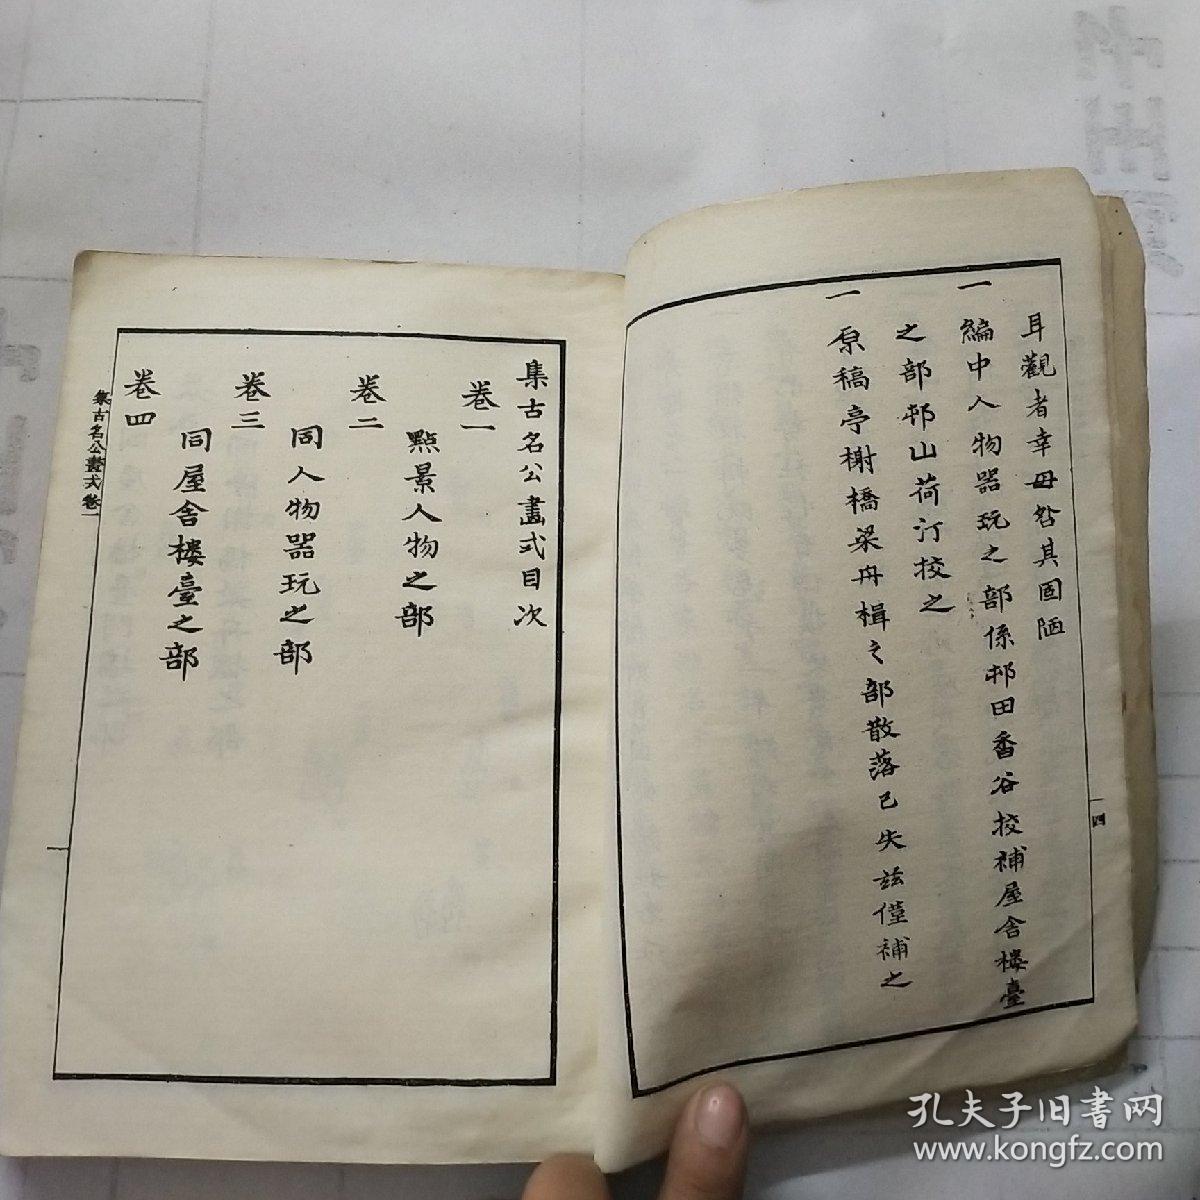 耳觀者幸毋咎其固陋
一編中人物器玩之部係邨田香谷挍補屋舍樓臺
之部邨山荷汀挍之
一原稿亭榭橋梁舟楫之部散落已失茲僅補之
四
集古名公畫式目次
卷一
點景人物之部
卷二
同人物器玩之部
卷三
同屋舍樓臺之部
卷四
集古名公畫式卷一
一
孔夫子旧书网
www.kongfz.com